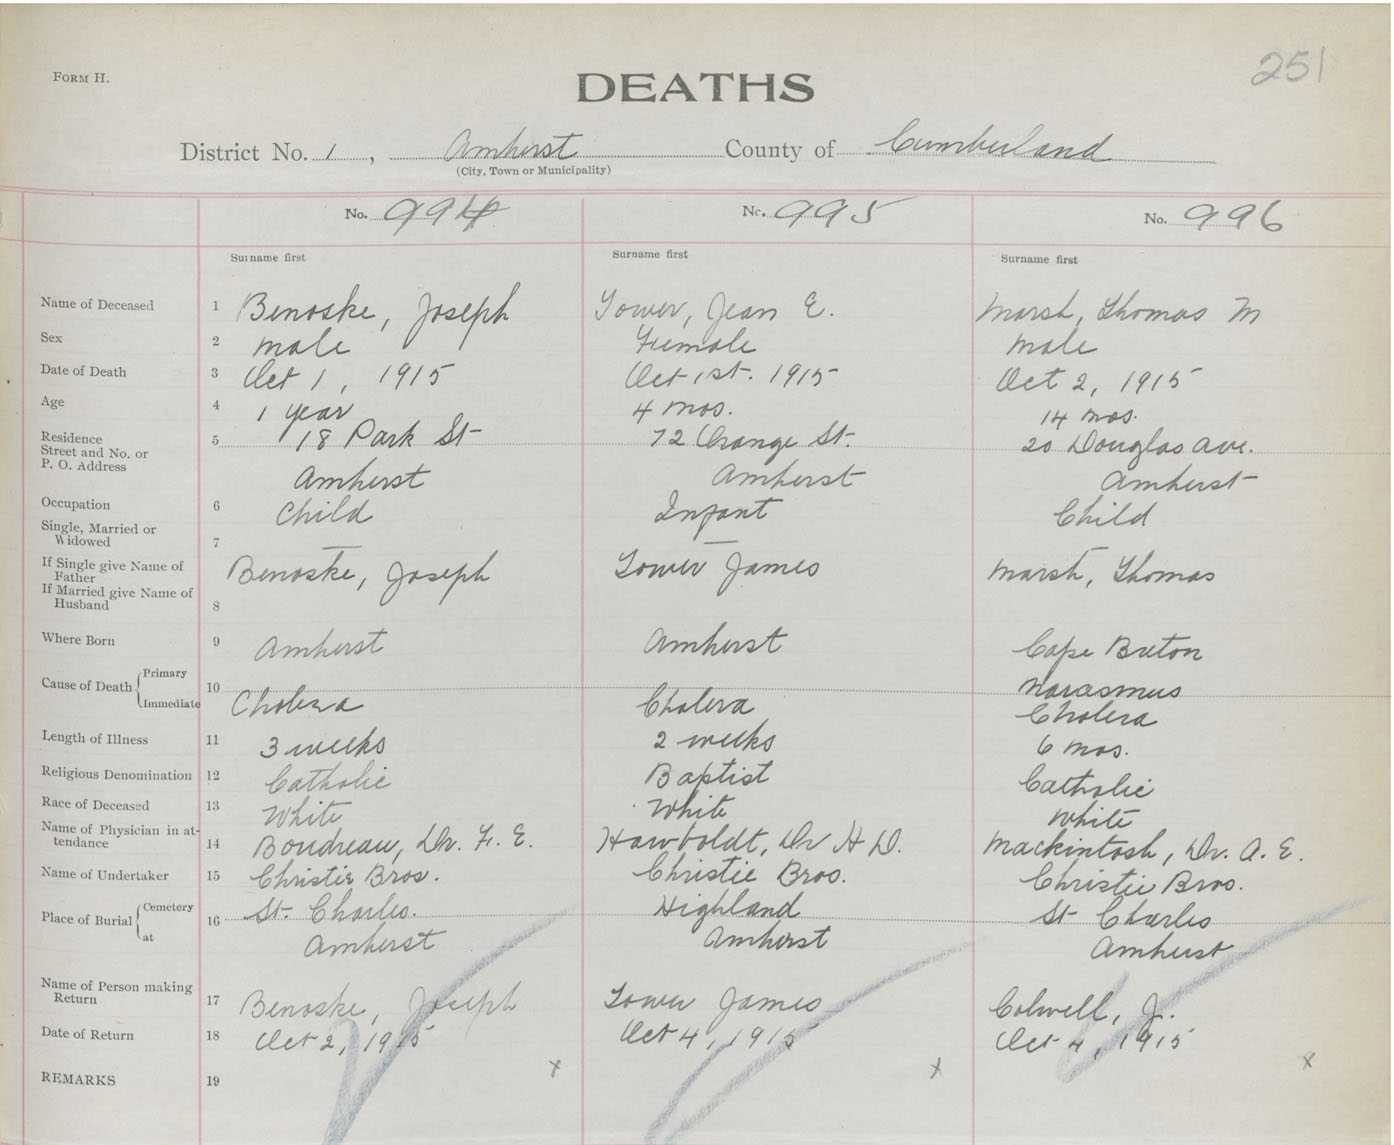 251
FORM H.
DEATHS
District No. 1, Amherst County of Cumberland
(City, Town or Municipality)
No. 994 No. 995 No. 996
Surname first Surname first Surname first
Name of Deceased 1 Benoske, Joseph Tower, Jean E. Marsh, Thomas M
Sex 2 Male Female Male
Date of Death 3 Oct 1, 1915 Oct 1st. 1915 Oct 2, 1915
Age 4 1 year 4 mos. 14 mos.
Residence
Street and No. or 5 18 Park St 72 Orange St. 20 Douglas Ave.
P. O. Address Amherst Amherst Amherst
Occupation 6 Child Infant Child
Single, Married or
Widowed 7 — — —
If Single give Name of
Father Benoske, Joseph Tower James Marsh, Thomas
If Married give Name of
Husband 8
Where Born 9 Amherst Amherst Cape Breton
Cause of Death Primary 10 Marasmus
Immediate Cholera Cholera Cholera
Length of Illness 11 3 weeks 2 weeks 6 mos.
Religious Denomination 12 Catholic Baptist Catholic
Race of Deceased 13 White White White
Name of Physician in at-
tendance 14 Boudreau, Dr. F. E. Hawboldt, Dr H D. Mackintosh, Dr. A. E.
Name of Undertaker 15 Christie Bros. Christie Bros. Christie Bros.
Place of Burial Cemetery 16 St. Charles. Highland St Charles
at Amherst Amherst Amherst
Name of Person making
Return 17 Benoske, Joseph Tower James Colwell, J.
Date of Return 18 Oct 2, 1915 Oct 4, 1915 Oct 4, 1915
REMARKS 19 x x x